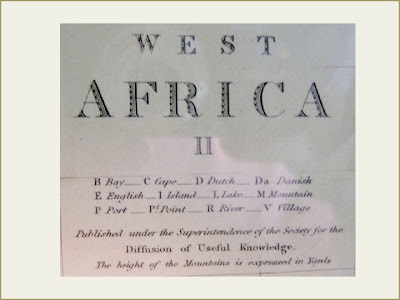 WEST
AFRICA
II
B Bay__C Cape__D Dutch__Da Danish
E English__I Island__L Lake__M Mountain
P Port__Pt. Point__R River__V Village
Published under the Superintendence of the Society for the
Diffusion of Useful Knowledge.
The height of the Mountains is expressed in Yards